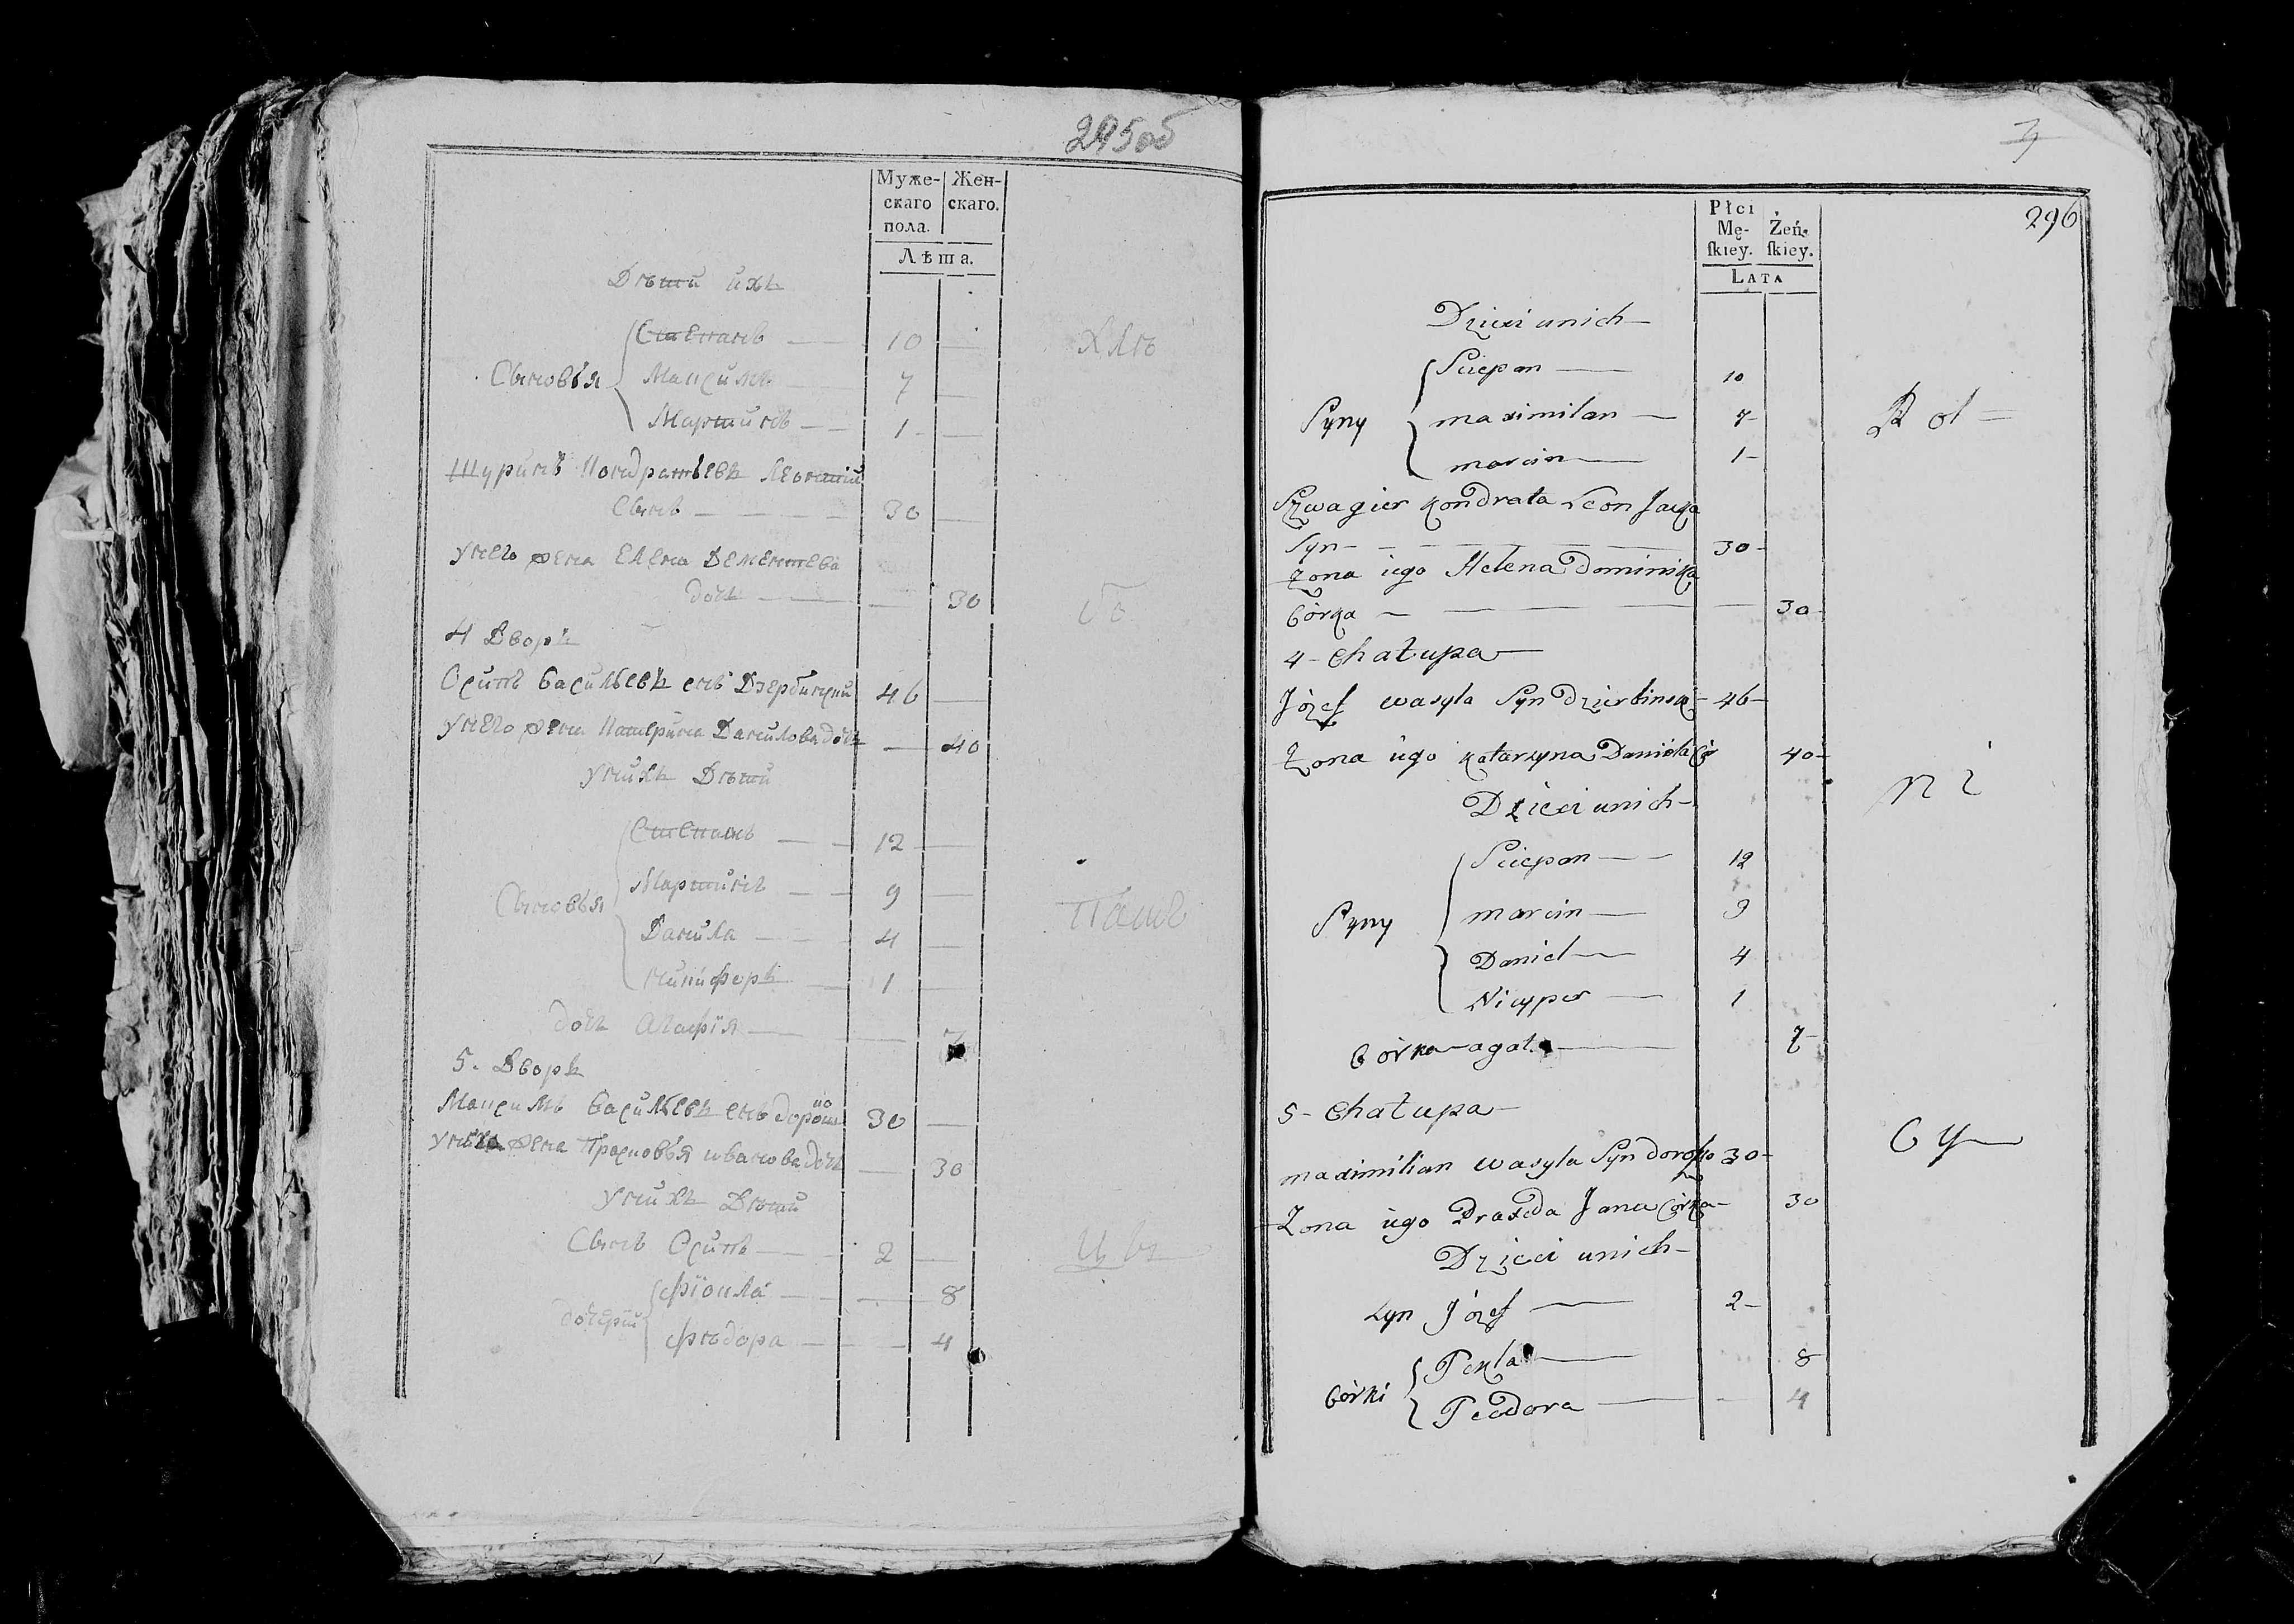 295об
Муже-
скаго
пола.
Жен-
скаго.
Лѣта.
Дѣти ихъ
Степанъ — 10 —
Сыновья Максимъ — 7 —
Мартинъ — 1 —
хлѣ
Шуринъ Кондратьевъ Леонтий
Сынъ — — — — 30 —
Унего жена Елена Дементева
дочь — — — 30
бо
4 Дворъ
Осипъ Васильевъ снъ Дзербинский 46 —
Унего жена Катерина Данилова дочь — 40
Унихъ Дѣти
Степанъ — — 12 —
Сыновья Мартинъ — — 9 —
Данила — — 4 —
никифоръ — 1 —
паше
дочь Агафия — — 7
5. Дворъ
Максимъ Васильевъ снъ дорошко 30 —
Унего жена Прасковья иванова дочь — 30
Унихъ Дѣти
Сынъ Осипъ — — 2 —
цы
Фіокла — — 8
дочери
Фѣдора — — — 4
3
296
Płci
Mę-
ſkiey.
Żeń-
ſkiey.
LATA
Dzieci unich —
Sciepan — 10
Syny maximilan — 7 —
marcin — 1 —
Rol —
Szwagier kondrata Leon Jacka
Syn — — — — 30 —
Zona iego Helena dominika
Córka — — — — — 30 —
4 — Chałupa —
Józef wasyla Syn dzierbinski — 46 —
Zona iego katarzyna Daniela Cór 40 —
ni
Dzieci unich —
Sciepan — — 12
Syny marcin — 9
Daniel — 4
Nicyper — 1
Córka — agata — 7 —
5 — Chałupa —
Cy —
maximilian wasyla Syn doroſzko 30 —
Zona iego Praxeda Jana Córka — 30
Dzieci unich —
Syn Józef — 2 —
Tekla — 8
Córki
Teodora — — 4